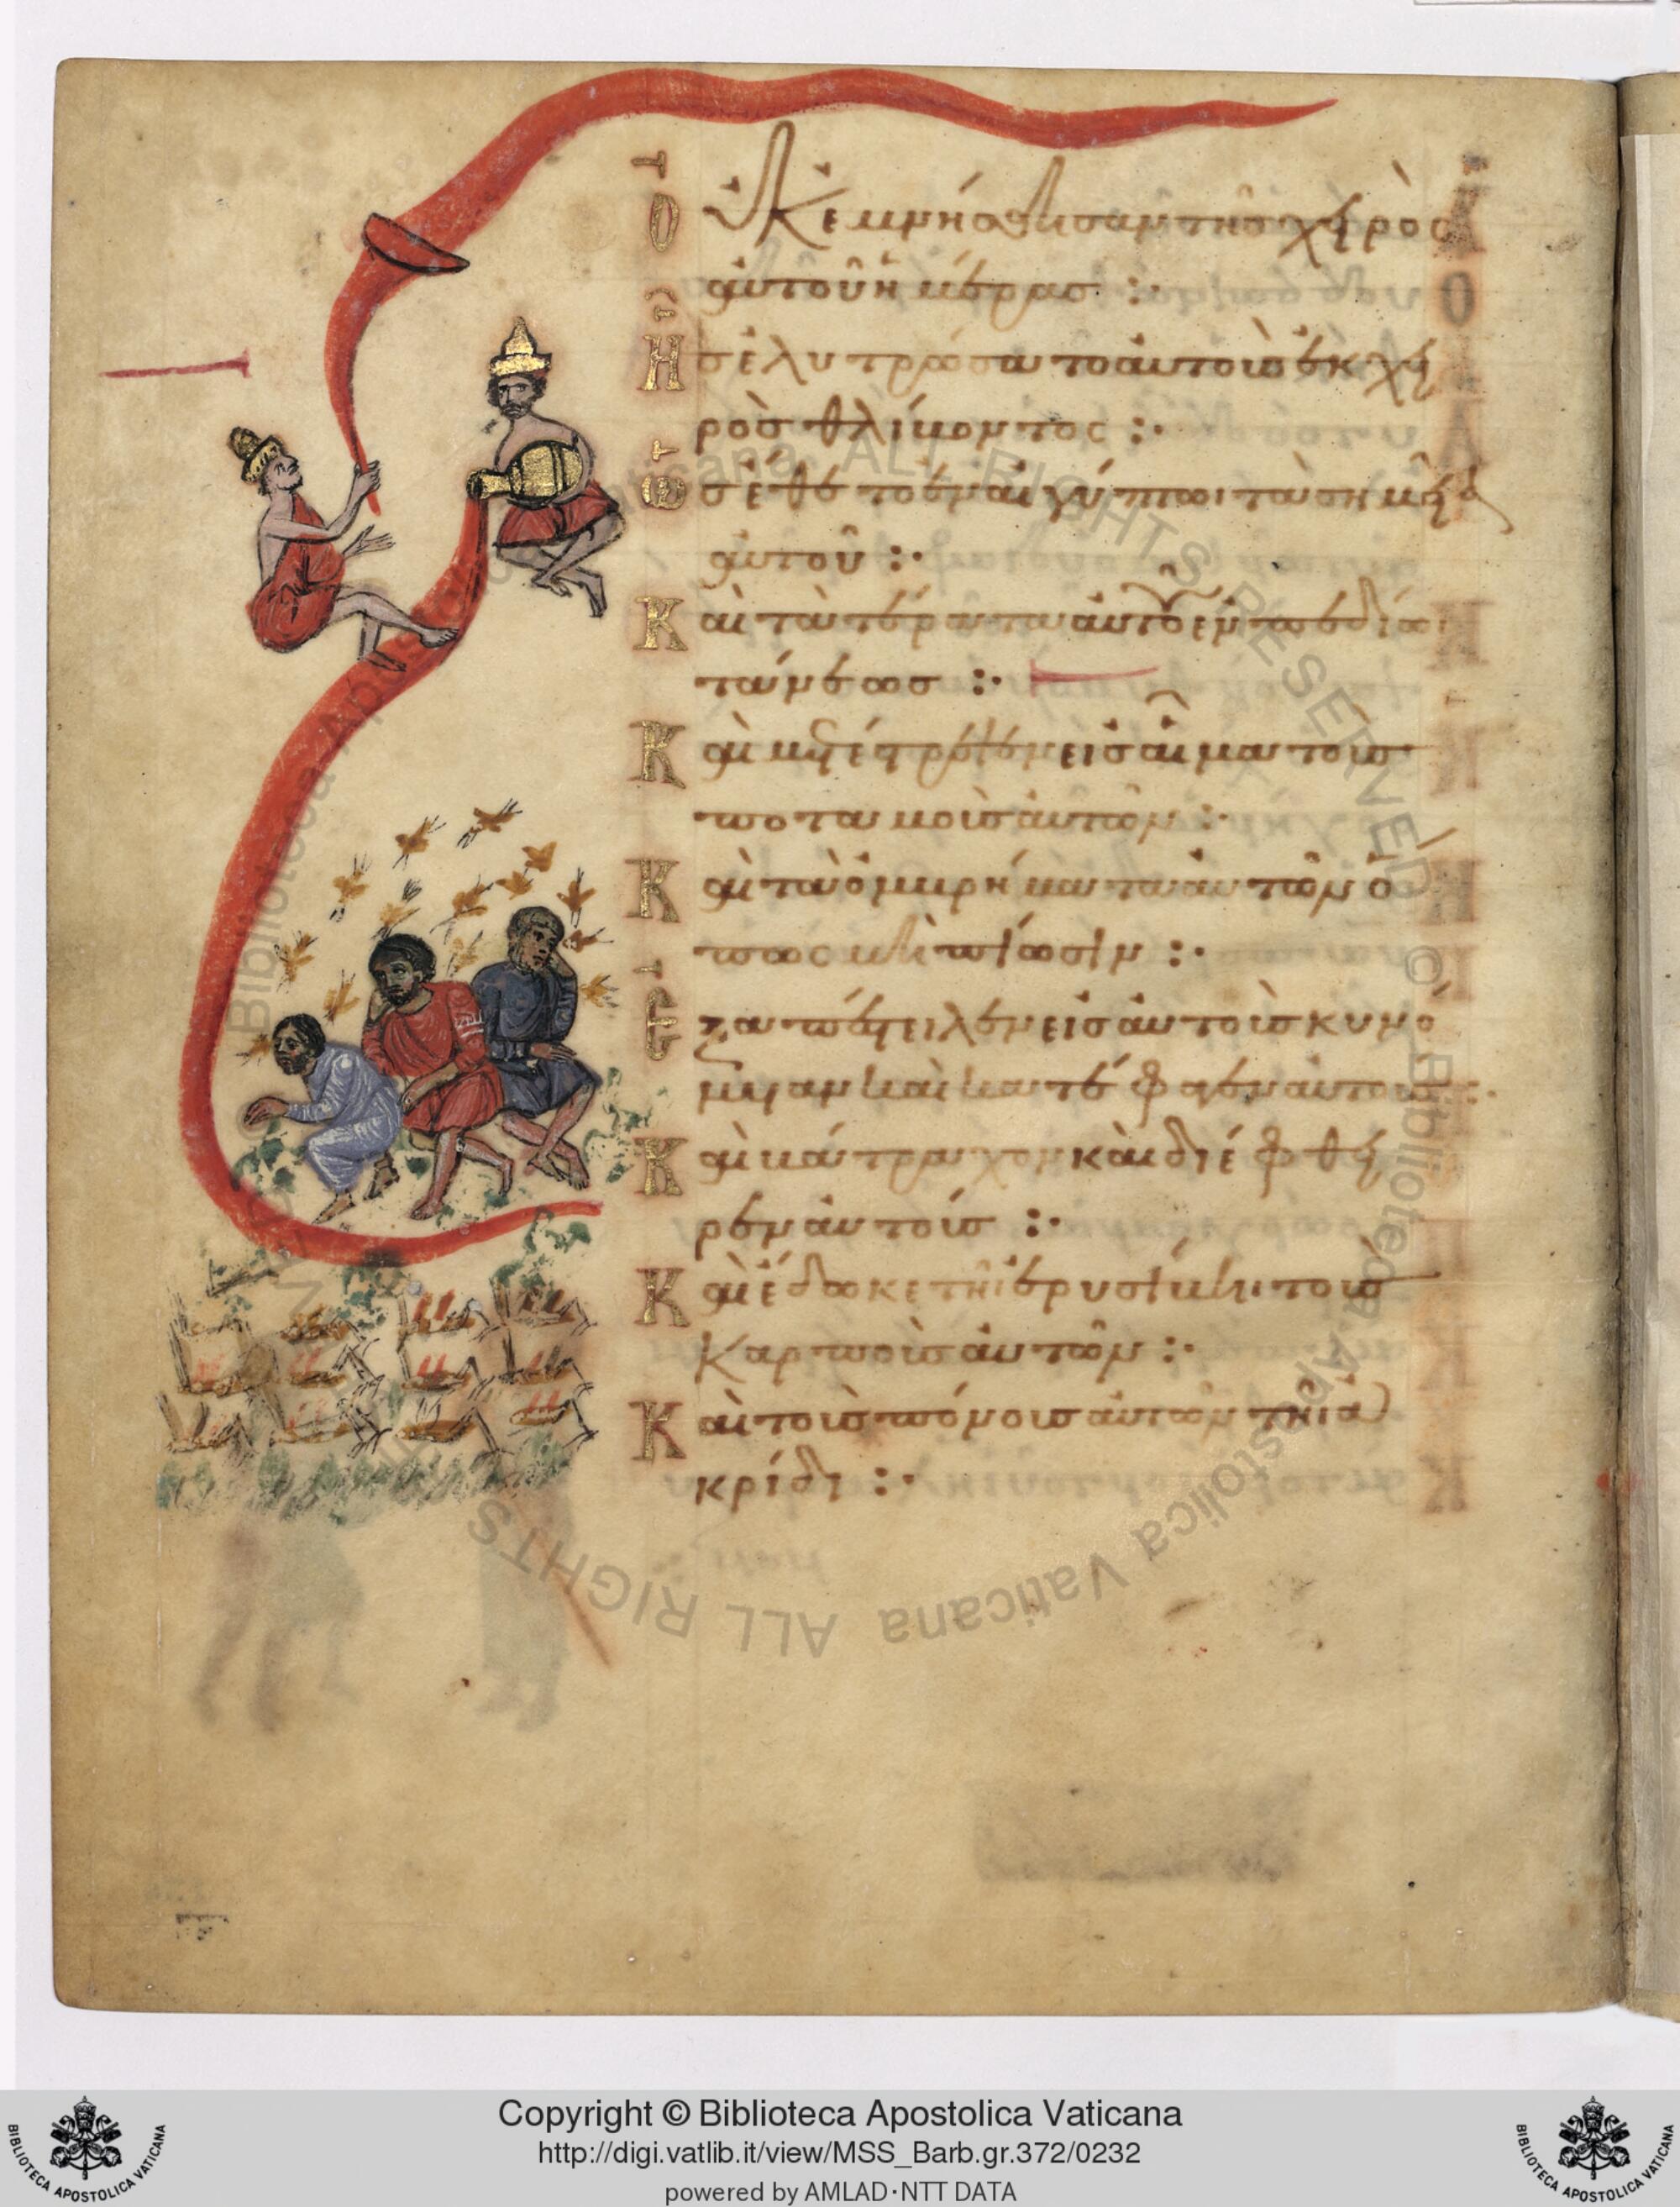 Οὐκ ἐμνήσθησαν τῆς χειρὸς
αὐτοῦ ἡμέρας :·
Ἧς ἐλυτρώσατο αὐτοὺς ἐκ χει
ρὸς θλίβοντος :·
Ὡς ἔθετο ἐν αἰγύπτωι τὰ σημεῖα
αὐτοῦ :·
Καὶ τὰ τέρατα αὐτοῦ ἐν πεδίωι
τάνεως :·
Καὶ μετέστρεψεν εἰς αἷμα τοὺς
ποταμοὺς αὐτῶν :·
Καὶ τὰ ὀμβρήματα αὐτῶν ὅ
πως μὴ πίωσιν :·
Ἐξαπέστειλεν εἰς αὐτοὺς κυνό
μυιαν καὶ κατέφαγεν αὐτούς :·
Καὶ βάτραχον καὶ διέφθει
ρεν αὐτούς :·
Καὶ ἔδωκε τῆι ἐρυσίβηι τοὺς
καρποὺς αὐτῶν :·
Καὶ τοὺς πόνους αὐτῶν τῆι ἀ
κρίδι :·
Copyright © Biblioteca Apostolica Vaticana
http://digi.vatlib.it/view/MSS_Barb.gr.372/0232
powered by AMLAD·NTT DATA
BIBLIOTECA APOSTOLICA VATICANA
BIBLIOTECA APOSTOLICA VATICANA